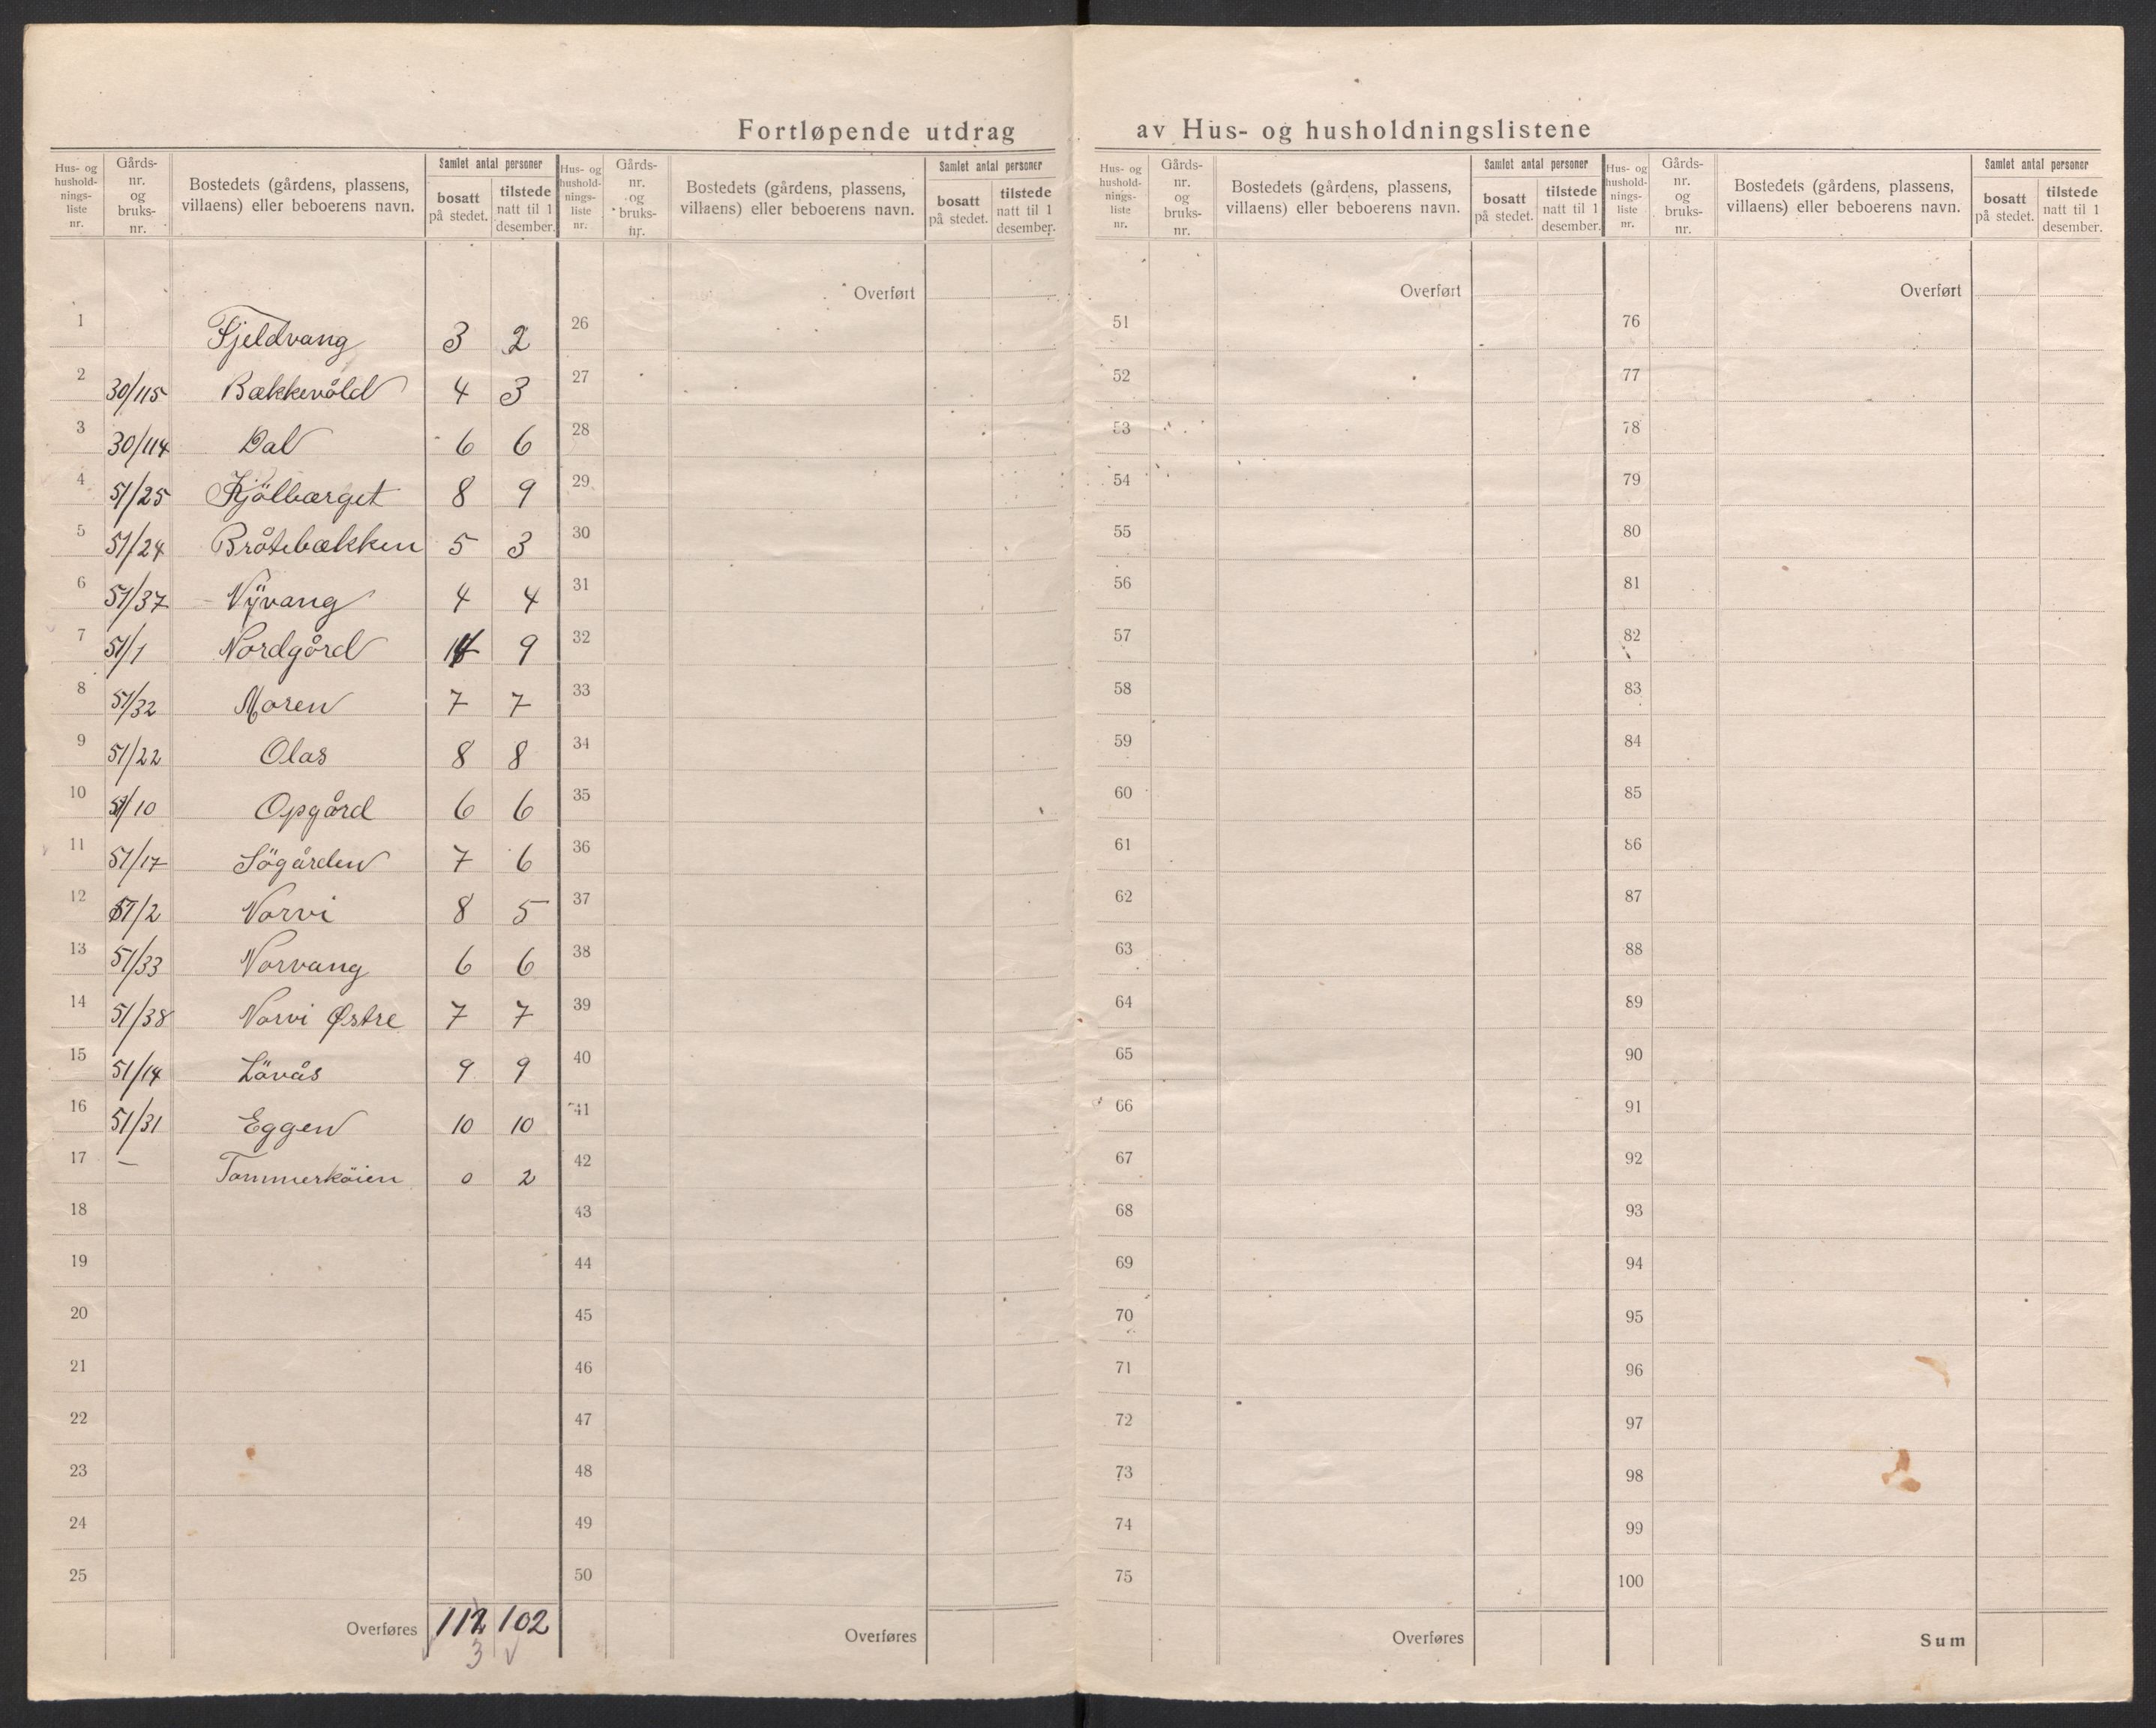 Fortløpende utdrag av Hus- og husholdningslistene
Hus- og husholdnings- liste nr. | Gårds- nr. og bruks- nr. | Bostedets (gårdens, plassens, villaens) eller beboerens navn. | Samlet antal personer | bosatt på stedet. | tilstede natt til 1 desember.
Hus- og hushold- nings- liste nr. | Gårds- nr. og bruks- nr. | Bostedets (gårdens, plassens, villaens) eller beboerens navn. | Samlet antal personer | bosatt på stedet. | tilstede natt til 1 desember.
Hus- og hushold- nings- liste nr. | Gårds- nr. og bruks- nr. | Bostedets (gårdens, plassens, villaens) eller beboerens navn. | Samlet antal personer | bosatt på stedet. | tilstede natt til 1 desember.
Hus- og hushold- nings- liste nr. | Gårds- nr. og bruks- nr. | Bostedets (gårdens, plassens, villaens) eller beboerens navn. | Samlet antal personer | bosatt på stedet. | tilstede natt til 1 desember.
Overført Overført Overført
1 Fjeldvang 3 2 26 51 76
2 30/115 Bækkevold 4 3 27 52 77
3 30/114 Dal 6 6 28 53 78
4 51/25 Kjölbærget 8 9 29 54 79
5 51/24 Bråtebækken 5 3 30 55 80
6 51/37 Nÿvang 4 4 31 56 81
7 51/1 Nordgård 9 32 57 82
8 51/32 Moren 7 7 33 58 83
9 51/22 Olas 8 8 34 59 84
10 51/10 Opgård 6 6 35 60 85
11 51/17 Sögården 7 6 36 61 86
12 51/2 Norvi 8 5 37 62 87
13 51/33 Norvang 6 6 38 63 88
14 51/38 Norvi Østre 7 7 39 64 89
15 51/14 Lövås 9 9 40 65 90
16 51/31 Eggen 10 10 41 66 91
17 — Tømmerköien 0 2 42 67 92
18 43 68 93
19 44 69 94
20 45 70 95
21 46 71 96
22 47 72 97
23 48 73 98
24 49 74 99
25 50 75 100
Overføres 112 102 Overføres Overføres Sum
3 √